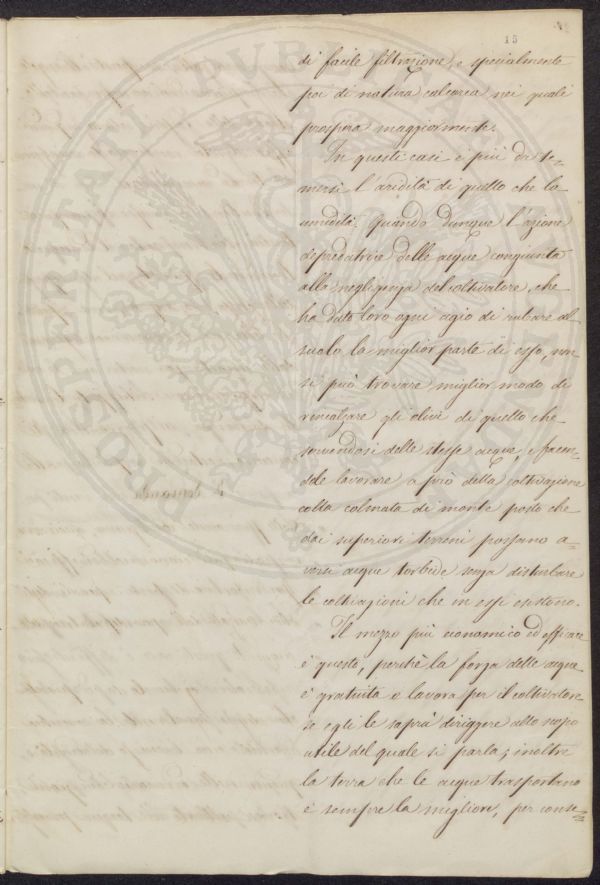 15
di facile filtrazione, e specialmente
poi di natura calcarea nei quali
prospera maggiormente.
In questi casi è più da te-
mersi l'aridità di quello che la
umidità. Quando dunque l'azione
depredatrice delle acque congiunta
alla negligenza del coltivatore, che
ha dato loro ogni agio di rubare al
suolo la miglior parte di esso, non
si può trovare miglior modo di
rincalzare gli olivi di quello che
servendosi delle stesse acque, e facen-
dole lavorare a prò della coltivazione
colla colmata di monte posto che
dai superiori terreni possano a-
versi acque torbide senza disturbare
le coltivazioni che in essi esistono.
Il mezzo più economico ed efficace
è questo, perchè la forza delle acque
è gratuita e lavora per il coltivatore
se egli le saprà diriggere allo scopo
utile del quale si parla; inoltre
la terra che le acque trasportano
è sempre la migliore, per conse-
PROSPERITATI PUBLICAE